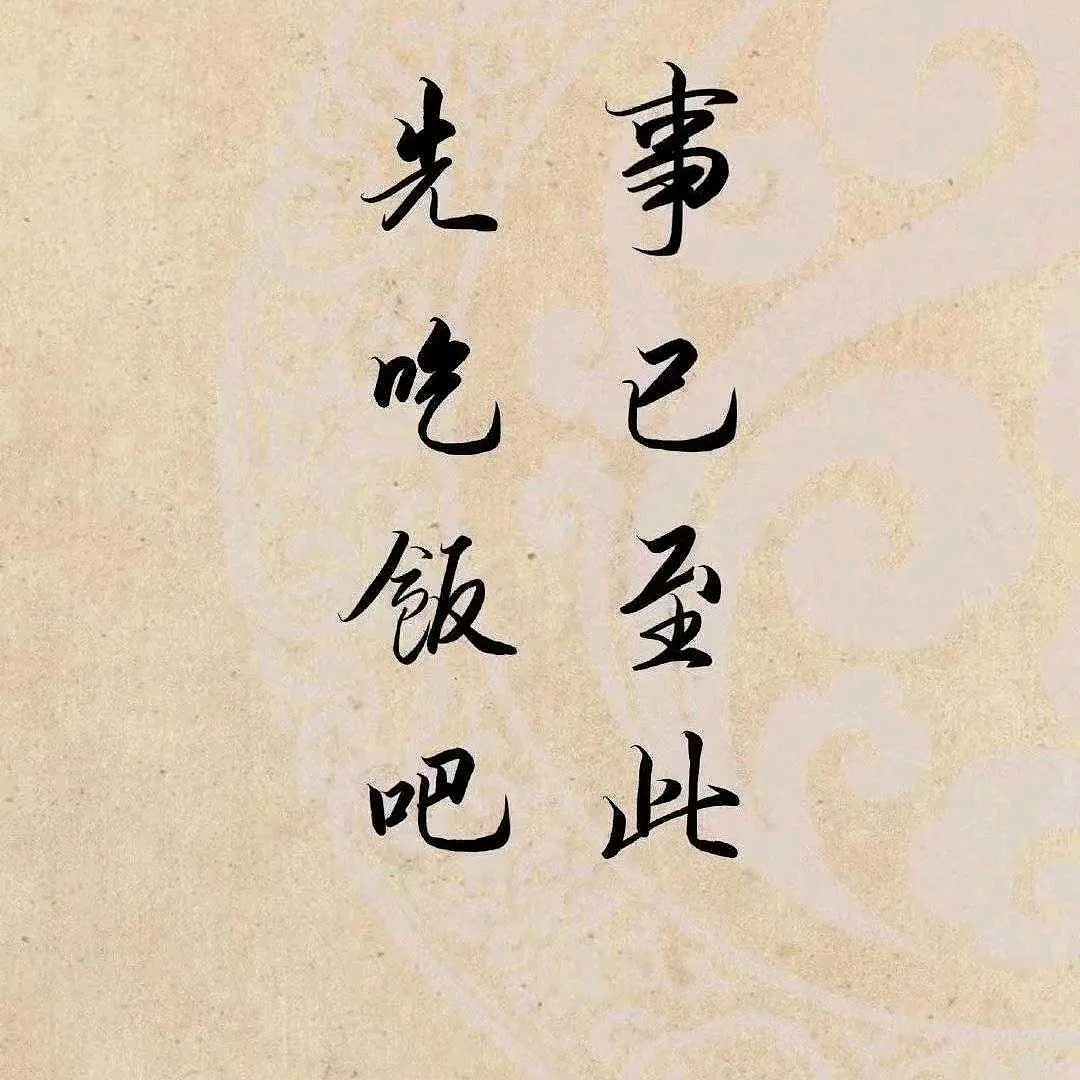 事已至此
先吃飯吧